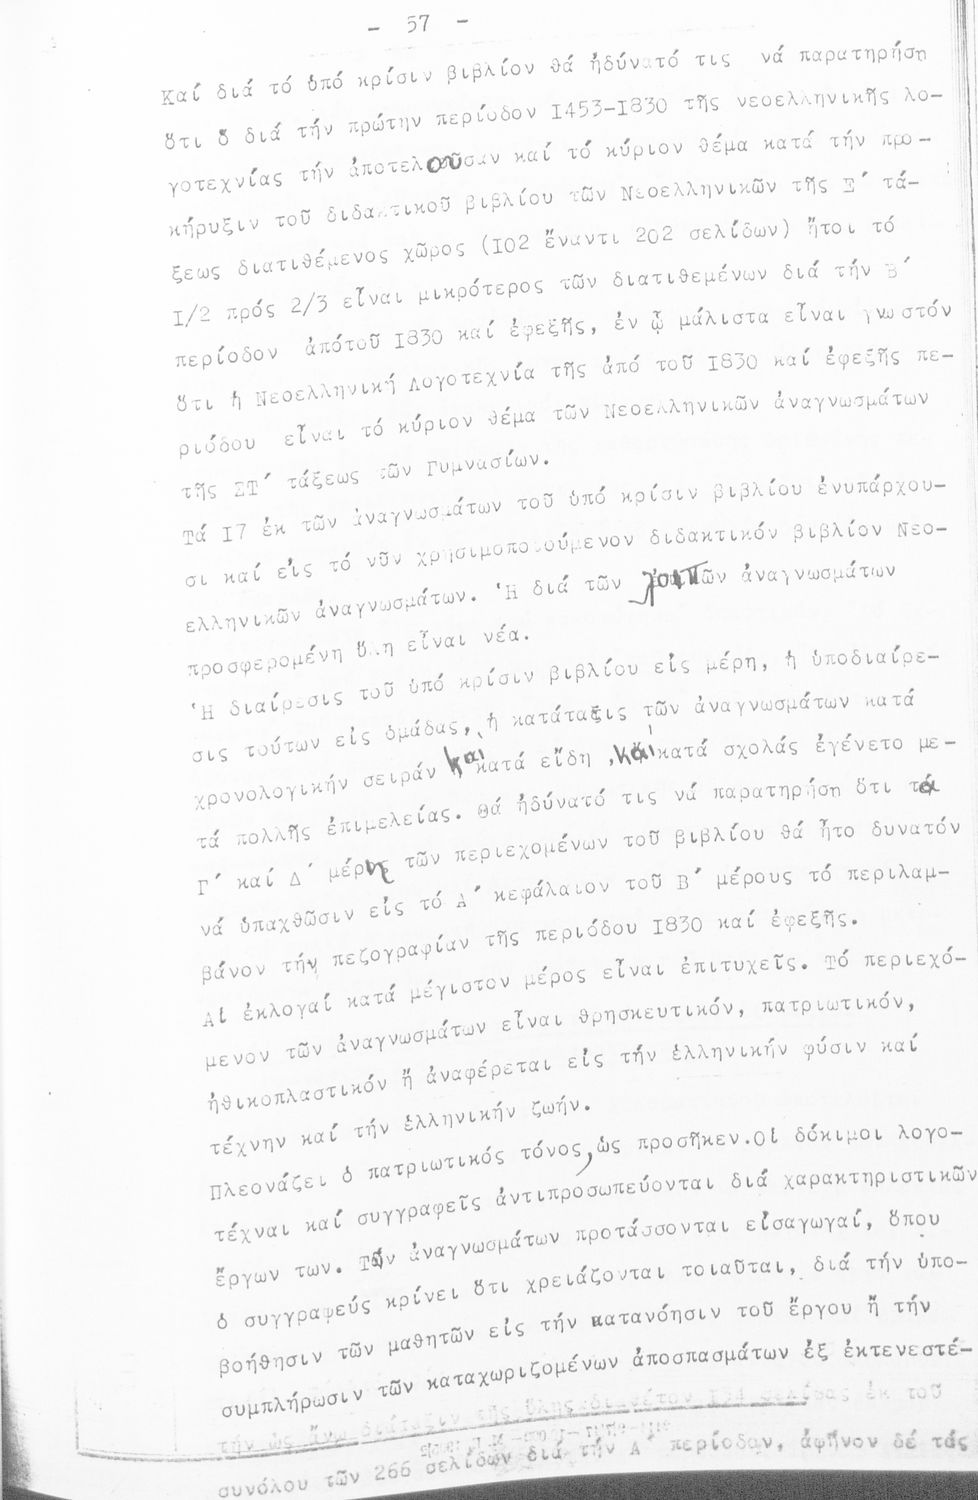 - 57 -
Καί διά τό ὑπό κρίσιν βιβλίον θά ἠδύνατό τις νά παρατηρήσῃ
ὅτι ὅ διά τήν πρώτην περίοδον 1453-1830 τῆς νεοελληνικῆς λο-
γοτεχνίας τήν ἀποτελοῦσαν καί τό κύριον θέμα κατά τήν προ-
κήρυξιν τοῦ διδακτικοῦ βιβλίου τῶν Νεοελληνικῶν τῆς Ε΄ τά-
ξεως διατιθέμενος χῶρος (102 ἔναντι 202 σελίδων) ἤτοι τό
1/2 πρός 2/3 εἶναι μικρότερος τῶν διατιθεμένων διά τήν Β΄
περίοδον ἀπότοῦ 1830 καί ἐφεξῆς, ἐν ᾧ μάλιστα εἶναι γνωστόν
ὅτι ἡ Νεοελληνική Λογοτεχνία τῆς ἀπό τοῦ 1830 καί ἐφεξῆς πε-
ριόδου εἶναι τό κύριον θέμα τῶν Νεοελληνικῶν ἀναγνωσμάτων
τῆς ΣΤ΄ τάξεως τῶν Γυμνασίων.
Τά 17 ἐκ τῶν ἀναγνωσμάτων τοῦ ὑπό κρίσιν βιβλίου ἐνυπάρχου-
σι καί εἰς τό νῦν χρησιμοποιούμενον διδακτικόν βιβλίον Νεο-
ελληνικῶν ἀναγνωσμάτων. Ἡ διά τῶν λοιπῶν ἀναγνωσμάτων
προσφερομένη ὕλη εἶναι νέα.
Ἡ διαίρεσις τοῦ ὑπό κρίσιν βιβλίου εἰς μέρη, ἡ ὑποδιαίρε-
σις τούτων εἰς ὁμάδας, ἡ κατάταξις τῶν ἀναγνωσμάτων κατά
χρονολογικήν σειράν καί κατά εἴδη, καί κατά σχολάς ἐγένετο με-
τά πολλῆς ἐπιμελείας. Θά ἠδύνατό τις νά παρατηρήσῃ ὅτι τά
Γ΄ καί Δ΄ μέρη τῶν περιεχομένων τοῦ βιβλίου θά ἦτο δυνατόν
νά ὑπαχθῶσιν εἰς τό Α΄ κεφάλαιον τοῦ Β΄ μέρους τό περιλαμ-
βάνον τήν πεζογραφίαν τῆς περιόδου 1830 καί ἐφεξῆς.
Αἱ ἐκλογαί κατά μέγιστον μέρος εἶναι ἐπιτυχεῖς. Τό περιεχό-
μενον τῶν ἀναγνωσμάτων εἶναι θρησκευτικόν, πατριωτικόν,
ἠθικοπλαστικόν ἤ ἀναφέρεται εἰς τήν ἑλληνικήν φύσιν καί
τέχνην καί τήν ἑλληνικήν ζωήν.
Πλεονάζει ὁ πατριωτικός τόνος, ὡς προσῆκεν.Οἱ δόκιμοι λογο-
τέχναι καί συγγραφεῖς ἀντιπροσωπεύονται διά χαρακτηριστικῶν
ἔργων των. Τῶν ἀναγνωσμάτων προτάσσονται εἰσαγωγαί, ὅπου
ὁ συγγραφεύς κρίνει ὅτι χρειάζονται τοιαῦται, διά τήν ὑπο-
βοήθησιν τῶν μαθητῶν εἰς τήν κατανόησιν τοῦ ἔργου ἤ τήν
συμπλήρωσιν τῶν καταχωριζομένων ἀποσπασμάτων ἐξ ἐκτενεστέ-
τήν ὡς ἄνω διάταξιν τῆς ὕλης σελίδας ἐκ τοῦ
συνόλου τῶν 266 σελίδων διά τήν Α΄ περίοδον, ἀφῆνον δέ τάς